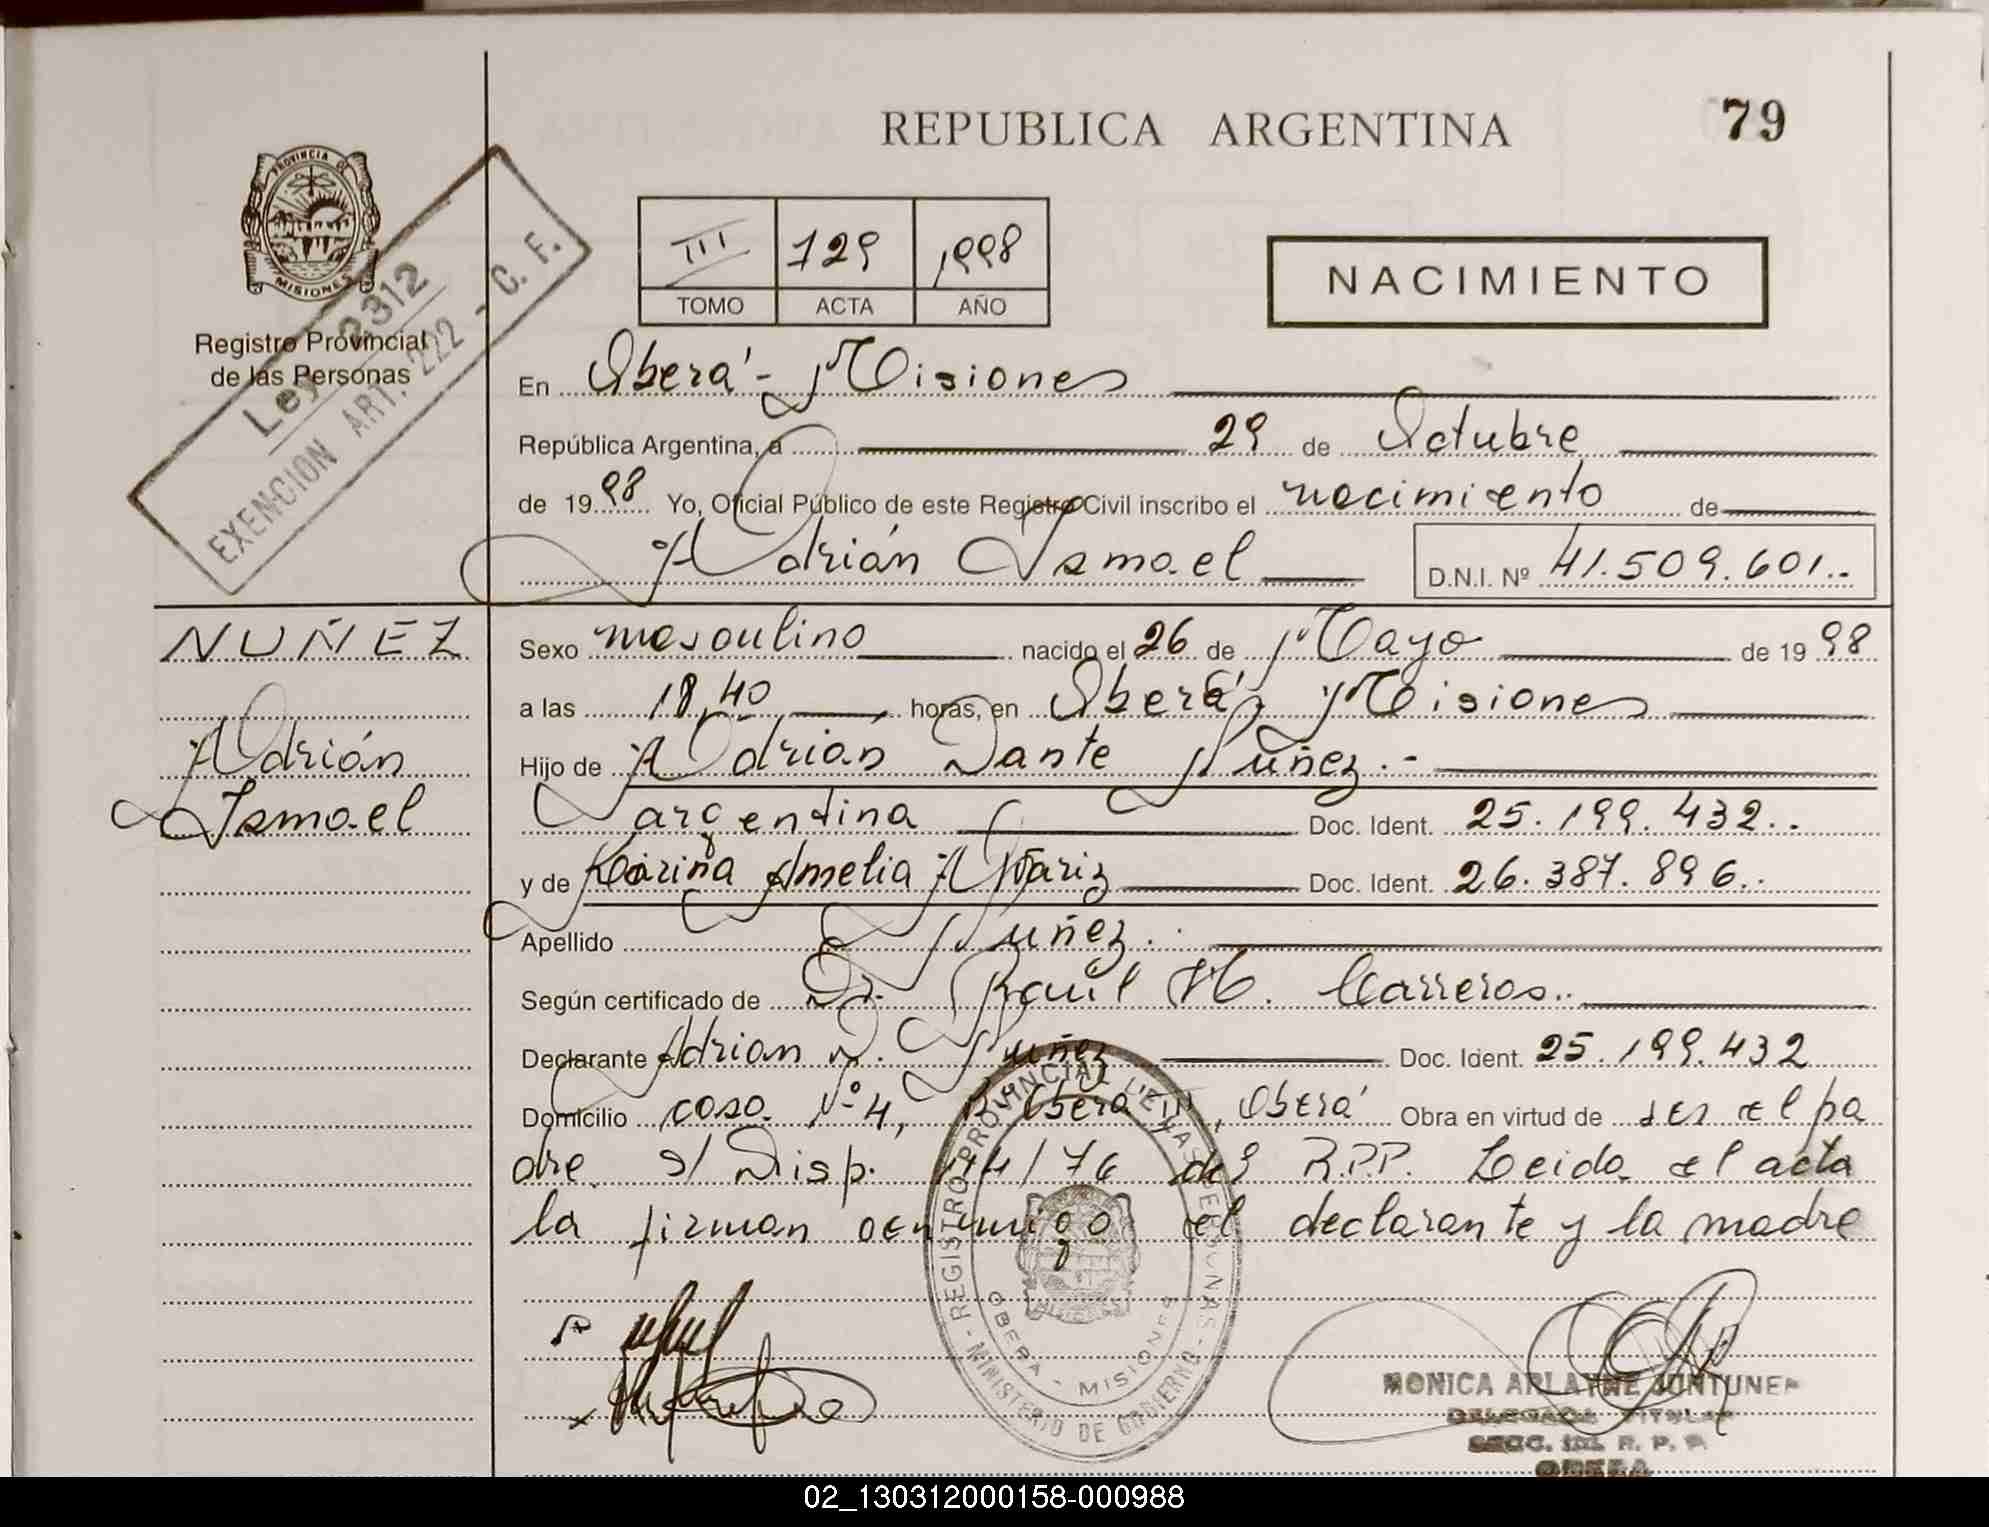 REPUBLICA ARGENTINA
79
PROVINCIA DE
MISIONES
Registro Provincial
de las Personas
Ley 2312
EXENCION ART. 222 - C. F.
III 729 1998
TOMO ACTA AÑO
NACIMIENTO
En Oberá - Misiones
República Argentina, a 29 de Octubre
de 1998 Yo, Oficial Público de este Registro Civil inscribo el nacimiento de
Adrián Ismael D.N.I. Nº 41.509.601..
NUÑEZ
Adrián
Ismael
Sexo masculino nacido el 26 de Mayo de 1998
a las 18,40 horas, en Oberá, Misiones
Hijo de Adrián Dante Nuñez.-
argentina Doc. Ident. 25.199.432..
y de Karina Amelia Doc. Ident. 26.387.896..
Apellido Nuñez.
Según certificado de Dr. Raúl H. Carreros..
Declarante Adrian D. Nuñez Doc. Ident. 25.199.432
Domicilio casa Nº 4, B. Oberá III, Oberá Obra en virtud de ser el pa
dre. s/ Disp. /76 del R.P.P. Leida el acta
la firman conmigo el declarante y la madre
REGISTRO PROVINCIAL DE LAS PERSONAS - MINISTERIO DE GOBIERNO -
OBERA - MISIONES
MONICA ARLAYNE JUNTUNEN
DELEGADA TITULAR
SECC. R. P. P.
OBERA
02_130312000158-000988